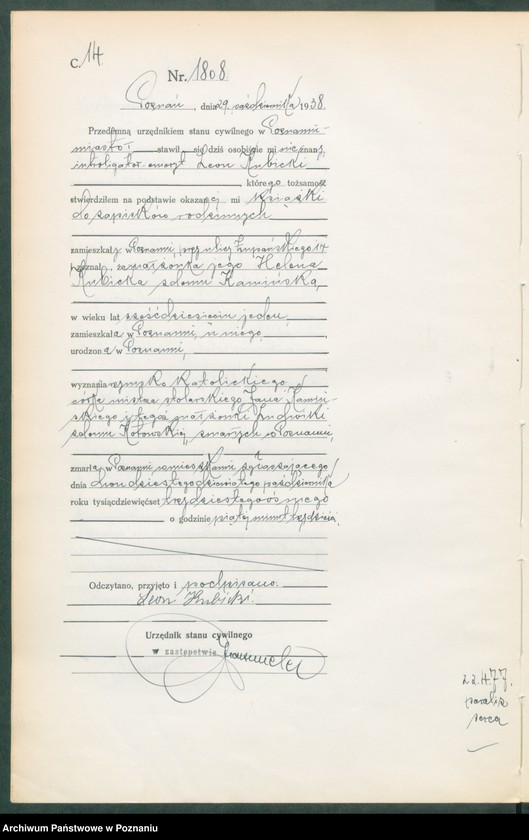 C. 14
Nr. 1808
Poznań, dnia 29. października 1938.
Przedemną urzędnikiem stanu cywilnego w Poznaniu-
miasto stawił się dziś osobiście mi nieznany,
introligator Leon Kubicki
, którego tożsamość
stwierdziłem na podstawie okazanej mi książki
do zapisków rodzinnych
zamieszkały w Poznaniu, przy ulicy Łupańskiego 14
i zeznał, że małżonka jego Helena
Kubicka z domu Kamińska,
w wieku lat sześćdziesięciu jeden,
zamieszkała w Poznaniu, u niego,
urodzona w Poznaniu,
wyznania rzymsko katolickiego,
córka mistrza stolarskiego Jana Kamiń-
skiego i tegoż małżonki Ludwiki
z domu zmarłych w Poznaniu,
zmarła w Poznaniu, w mieszkaniu zgłaszającego,
dnia dwudziestego dziewiątego października
roku tysiącdziewięćset trzydziestego ósmego
o godzinie piątej minut trzydzieści.
Odczytano, przyjęto i podpisano.
Leon Kubicki.
Urzędnik stanu cywilnego
w zastępstwie
22.477.
paraliż
serca
Archiwum Państwowe w Poznaniu